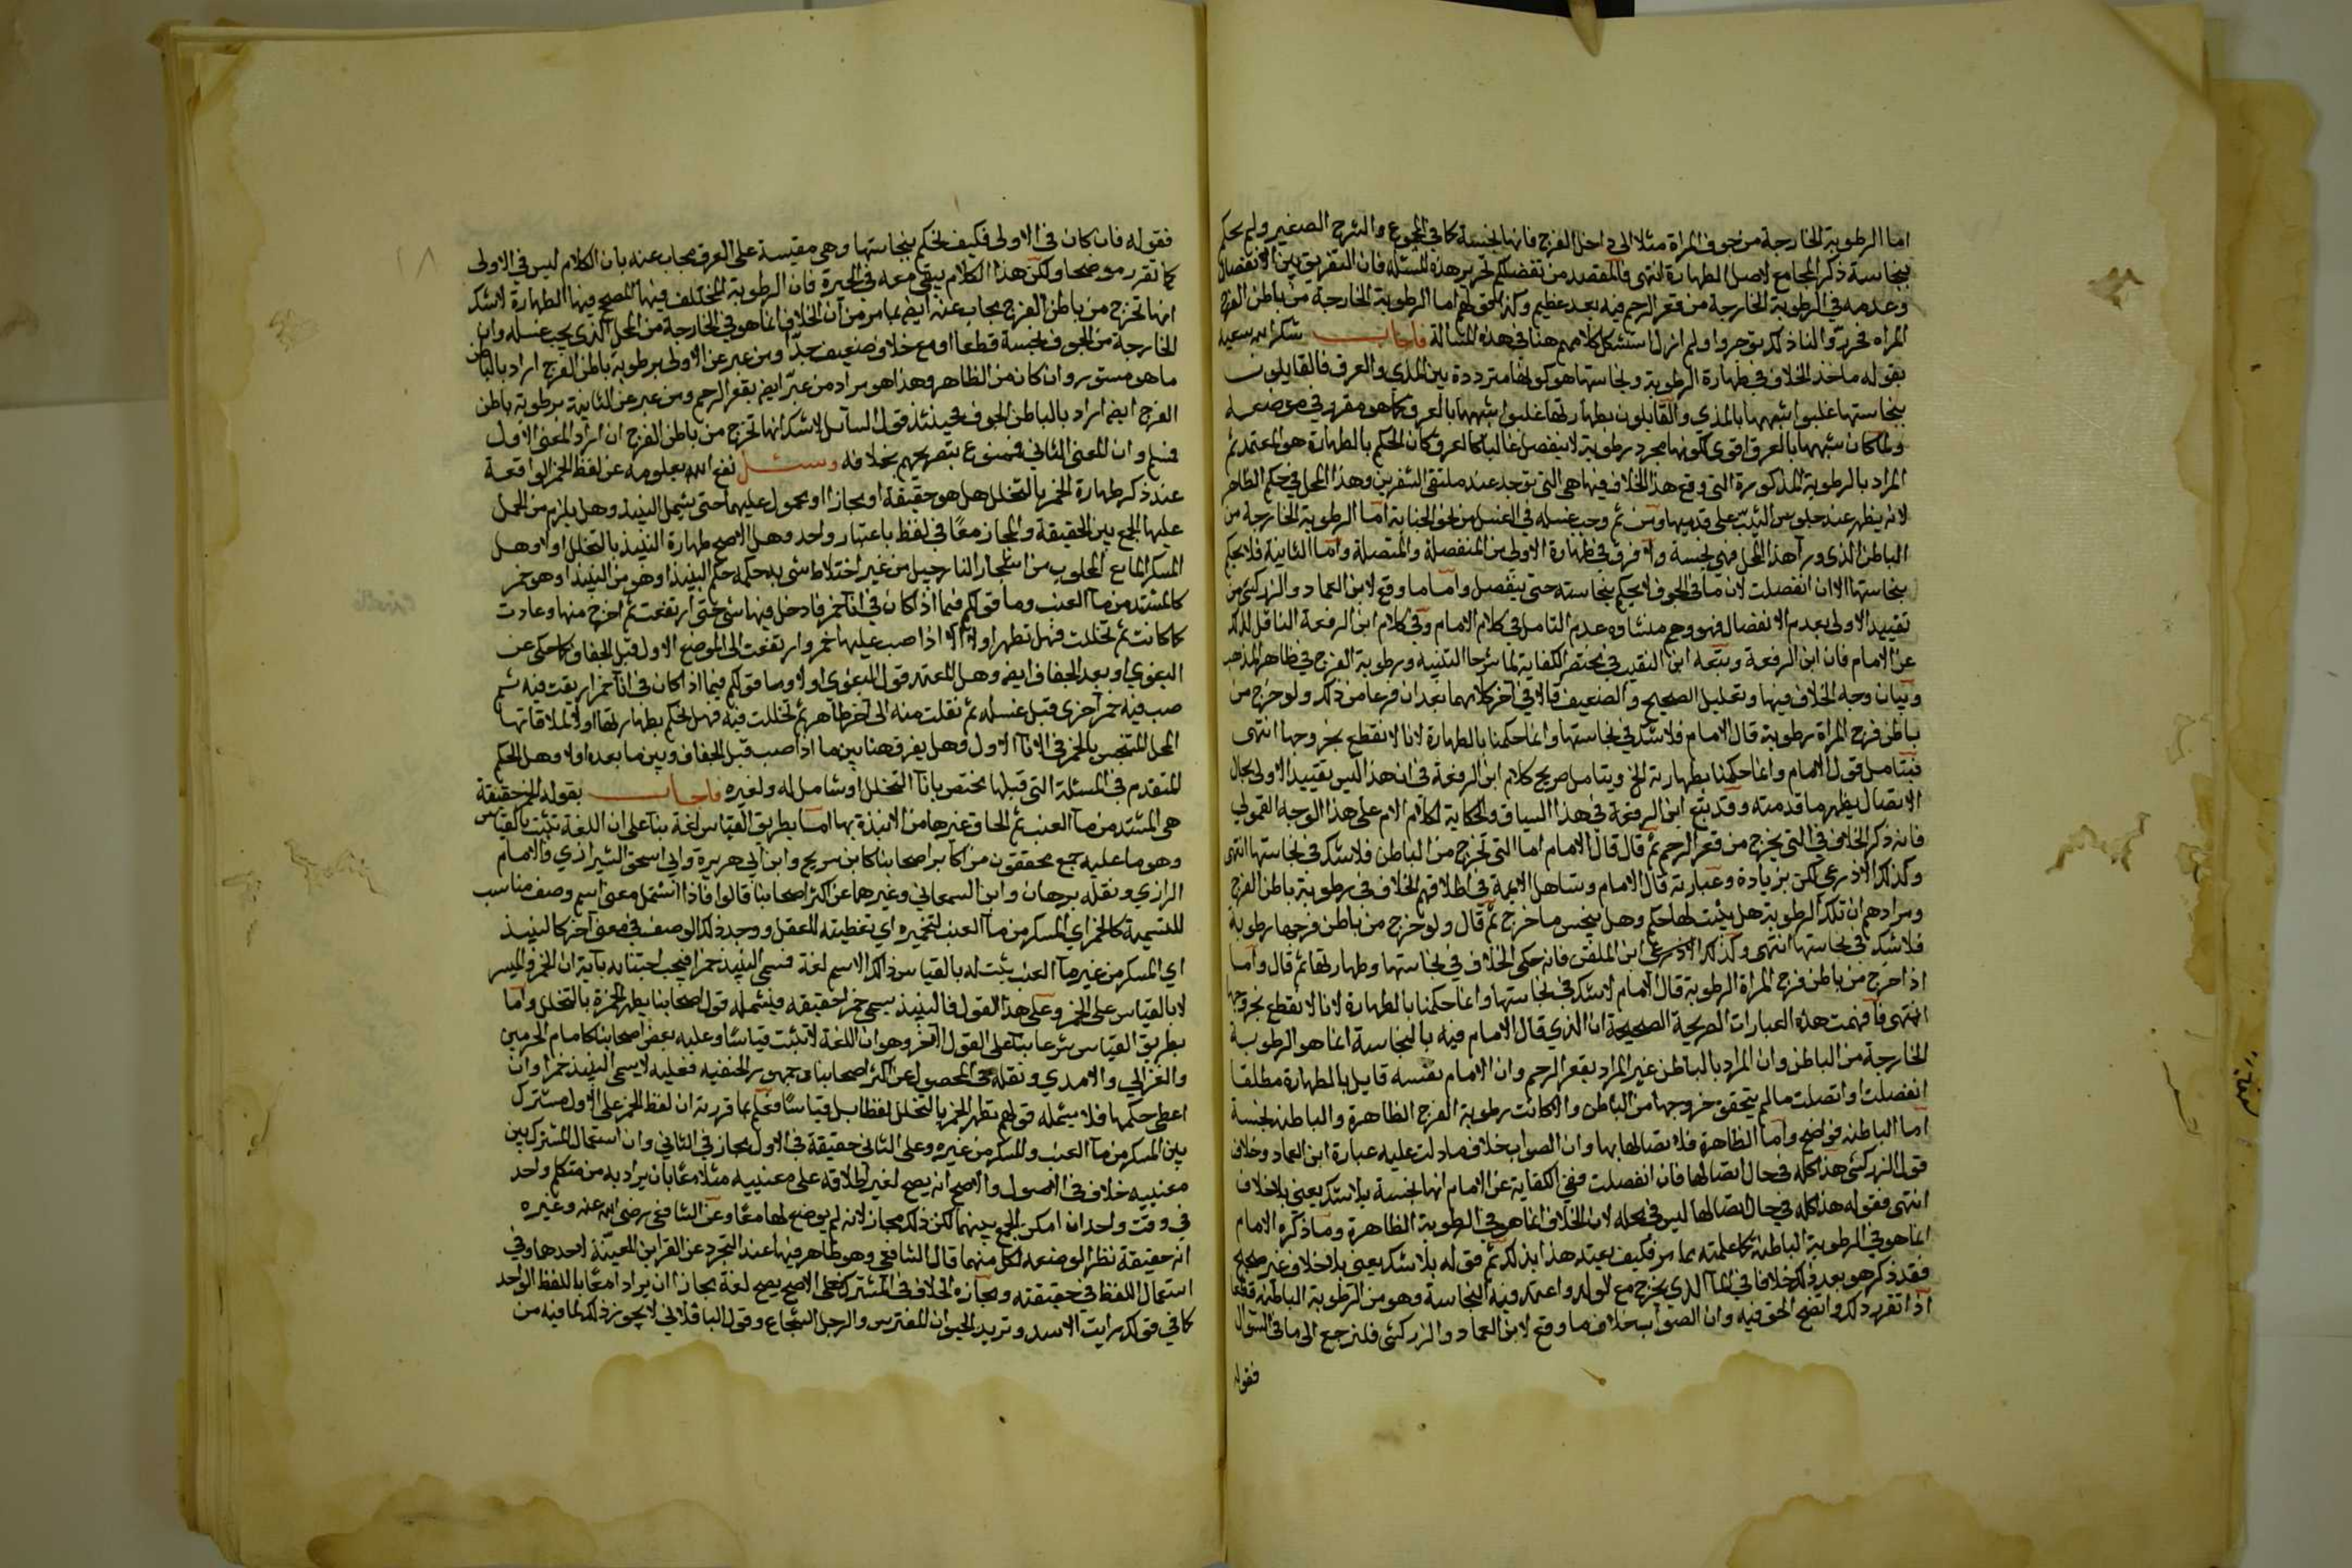 اما الرطوبة الخارجة من جوف المراة مثلا الى داخل الفرج فانها نجسة كما في المجموع والشرح الصغير ولم يحكم
بنجاسة ذكر المجامع لاصل الطهارة انتهى فالمقصد من تفضلكم تحرير هذه المسئلة فان التفريق بين الانفصال
وعدمه في الرطوبة الخارجة من قعر الرحم فيه بعد عظيم وكذا لحوقهم اما الرطوبة الخارجة من باطن الفرج
المراه فحرروا لنا ذلك توجروا ولم ازل استشكل كلامهم هنا في هذه المسالة فاجاب شكر الله سعيه
بقوله ماخذ الخلاف في طهارة الرطوبة ونجاستها هو كونها مترددة بين المذي والعرق فالقايلون
بنجاستها غلبوا شبهها بالمذي والقايلون بطهارتها غلبوا شبهها بالعرق كما هو مقرر في موضعه
ولما كان شبهها بالعرق اقوى لكونها مجرد رطوبة لا ينفصل غالبا كالعرق كان الحكم بالطهارة هو المعتمد ثم
المراد بالرطوبة المذكورة التي وقع هذا الخلاف فيها هي التي توجد عند ملتقى الشفرين وهذا المحل في حكم الظاهر
لانه يظهر عند جلوس الثيب على قدميها ومن ثم وجب غسله في الغسل من نحو الجنابة اما الرطوبة الخارجة من
الباطن الذي ورآ هذا المحل فهي نجسة ولا فرق في طهارة الاولى بين المنفصلة والمتصلة واما الثانية فلا يحكم
بنجاستها الا ان انفصلت لان ما في الجوف لا يحكم بنجاسته حتى ينفصل واما ما وقع لابن العماد والزركشي من
تقييد الاولى بعدم الانفصال فهو وهم منشاوه عدم التامل في كلام الامام وفي كلام ابن الرفعة الناقل لذلك
عن الامام فان ابن الرفعة وتبعه ابن النقيب في مختصر الكفاية لما شرحا التنبيه ورطوبة الفرج في ظاهر المذهب
وبيان وجه الخلاف فيها وتعليل الصحيح والضعيف قالا في آخر كلامهما بعد ان فرغا من ذلك ولو خرج من
باطن فرج المراة رطوبة قال الامام فلا شك في نجاستها وانما حكمنا بالطهارة لانا لا نقطع بخروجها انتهى
فبتامل قول الامام وانما حكمنا بطهارته الخ وبتامل صريح كلام ابن الرفعة في ان هذا ليس تقييد الاولى بحال
الاتصال يظهر ما قدمته وقد تبع ابن الرفعة في هذا السياق والحكاية لكلام الامام على هذا الوجه القمولي
فانه ذكر الخلاف في التي يخرج من قعر الرحم ثم قال قال الامام اما التي تخرج من الباطن فلا شك في نجاستها انتهى
وكذلك الاذرعي لكن بزيادة وعبارته قال الامام وتساهل الايمة في اطلاقهم الخلاف في رطوبة باطن الفرج
ومرادهم ان تلك الرطوبة هل يثبت لها حكم وهل ينجس ما خرج ثم قال ولو خرج من باطن فرجها رطوبة
فلا شك في نجاستها انتهى وكذلك الاذرعي ابن الملقن فانه حكى الخلاف في نجاستها وطهارتها ثم قال واما
اذا خرج من باطن فرج المراة الرطوبة قال الامام لا شك في نجاستها وانما حكمنا بالطهارة لانا لا نقطع بخروجها
انتهى فافهمت هذه العبارات الصريحة الصحيحة ان الذي قال الامام فيه بالنجاسة انما هو الرطوبة
الخارجة من الباطن وان المراد بالباطن غير المراد بقعر الرحم وان الامام نفسه قايل بالطهارة مطلقا
انفصلت او اتصلت ما لم يتحقق خروجها من الباطن والا كانت رطوبة الفرج الظاهرة والباطنه نجسة
اما الباطنه فواضح واما الظاهرة فلاتصالها بها وان الصواب خلاف ما دلت عليه عبارة ابن العماد وخلاف
قول الزركشي هذا كله في حال اتصالها فان انفصلت ففي الكفاية عن الامام انها نجسة بلا شك يعني بلا خلاف
انتهى فقوله هذا كله في حال اتصالها ليس في محله لان الخلاف انما هو في الرطوبة الظاهرة وما ذكره الامام
انما هو في الرطوبة الباطنة كما علمته مما مر فكيف يقيد هذا بذلك ثم قوله بلا شك يعني بلا خلاف غير صحيح
فقد ذكر هو بعد ذلك خلافا في المآ الذي يخرج مع الولد واعتمد فيه النجاسة وهو من الرطوبة الباطنة قطعا
اذا تقرر ذلك واتضح الحق فيه وان الصواب خلاف ما وقع لابن العماد والزركشي فلنرجع الى ما في السؤال
فقوله
فقوله فان كان في الاولى فكيف نحكم بنجاستها وهي مقيسة على العرق يجاب عنه بان الكلام ليس في الاولى
كما تقرر موضحا ولكن هذا الكلام يبقى معه في الحيرة فان الرطوبة المختلف فيها المصحح فيها الطهارة لا شك
انها تخرج من باطن الفرج يجاب عنه ايضا بما مر من ان الخلاف انما هو في الخارجة من المحل الذي يجب غسله وان
الخارجة من الجوف نجسة قطعا او مع خلاف ضعيف جدا ومن عبر عن الاولى برطوبة باطن الفرج اراد بالباطن
ما هو مستور وان كان من الظاهر وهذا هو مراد من عبر ايضا بقعر الرحم ومن عبر عن الثانية برطوبة باطن
الفرج ايضا اراد بالباطن الجوف فحينئذ قول السآئل لا شك انها تخرج من باطن الفرج ان اراد المعنى الاول
فنعم وان المعنى الثاني فممنوع بتصريحهم بخلافه وسئل نفع الله بعلومه عن لفظ الخمر الواقعة
عند ذكر طهارة الخمر بالتخلل هل هو حقيقة او مجازا او محمول عليهما حتى يشمل النبيذ وهل يلزم من الحمل
عليها الجمع بين الحقيقة والمجاز معا في لفظ باعتبار واحد وهل الاصح طهارة النبيذ بالتخلل او لا وهل
المسكر المائع المجلوب من اشجار النارجيل من غير اختلاط شي به حكمه حكم النبيذ او هو من النبيذ او هو خمر
كالمشتد من مآ العنب وما قولكم فيما اذا كان في انآ خمر فادخل فيها شي حتى ارتفعت ثم اخرج منها وعادت
كما كانت ثم تخللت فهل تطهر او لا الا اذا صب عليها خمر وارتفعت الى الموضع الاول قبل الجفاف كما حكى عن
البغوي او بعد الجفاف ايضا وهل المعتمد قول البغوي او لا وما قولكم فيما اذا كان في انآ خمر اريقت فيه ثم
صب فيه خمر آخرى قبل غسله ثم نقلت منه الى آخر طاهر ثم تخللت فيه فهل نحكم بطهارتها او لا لملاقاتها
المحل المتنجس بالخمر في الانآ الاول وهل يفرق هنا بين ما اذا صب قبل الجفاف وبين ما بعده او لا وهل الحكم
المتقدم في المسئلة التي قبلها يختص بانآ التخلل او شامل له ولغيره فاجاب بقوله الخمر حقيقة
هي المشتد من مآ العنب ثم الحاق غيرها من الانبذة بها اما بطريق القياس لغة بنآ على ان اللغة تثبت بالقياس
وهو ما عليه جمع محققون من اكابر اصحابنا كابن سريج وابن ابي هريرة وابي اسحق الشيرازي والامام
الرازي ونقله برهان وابن السمعاني وغيرهما عن اكثر اصحابنا قالوا فاذا اشتمل معنى اسم وصف مناسب
للتسمية كالخمر اي المسكر من مآ العنب لتخميره اي تغطيته للعقل ووجد ذلك الوصف في معنى آخر كالنبيذ
اي المسكر من غير مآ العنب يثبت له بالقياس ذلك الاسم لغة فنسمي النبيذ خمرا فيجب اجتنابه بآية ان الخمر والميسر
لا بالقياس على الخمر وعلى هذا القول فالنبيذ يسمى خمرا حقيقة فيشمله قول اصحابنا يطهر الخمرة بالتخلل واما
بطريق القياس شرعا بنآ على القول الآخر وهو ان اللغة لا تثبت قياسا وعليه بعض اصحابنا كامام الحرمين
والغزالي والامدي ونقله في المحصول عن اكثر اصحابنا وجمهور الحنفيه فعليه لا يسمى النبيذ خمرا وان
اعطى حكمها فلا يشمله قولهم تطهر الخمر بالتخلل لفظا بل قياسا فعلم بما قررته ان لفظ الخمر على الاول مشترك
بين المسكر من مآ العنب والمسكر من غيره وعلى الثاني حقيقة في الاول مجاز في الثاني وان استعمال المشترك بين
معنييه خلاف في الاصول والاصح انه يصح لغير اطلاقه على معنييه مثلا معا بان يراد به من متكلم واحد
في وقت واحد ان امكن الجمع بينهما لكن ذلك مجاز لانه لم يوضع لهما معا وعن الشافعي رضي الله عنه وغيره
انه حقيقة نظرا لوضعه لكل منهما قال الشافعي وهو ظاهر فيهما عند التجرد عن القراين المعينة لاحدهما وفي
استعمال اللفظ في حقيقته ومجازه الخلاف في المشترك فعلى الاصح يصح لغة مجازا ان يرادا معا باللفظ الواحد
كما في قولك رايت الاسد وتريد الحيوان المفترس والرجل الشجاع وقول الباقلاني لا يجوز ذلك لما فيه من